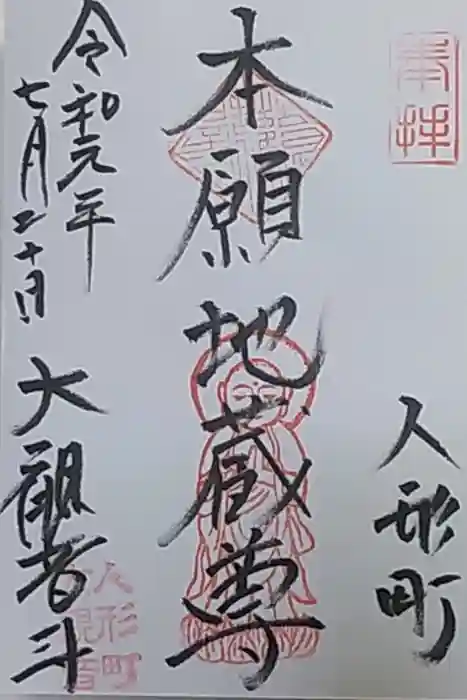 奉拝
人形町
本願地蔵尊
令和元年
七月二十日
大観音寺
人形町
大観音